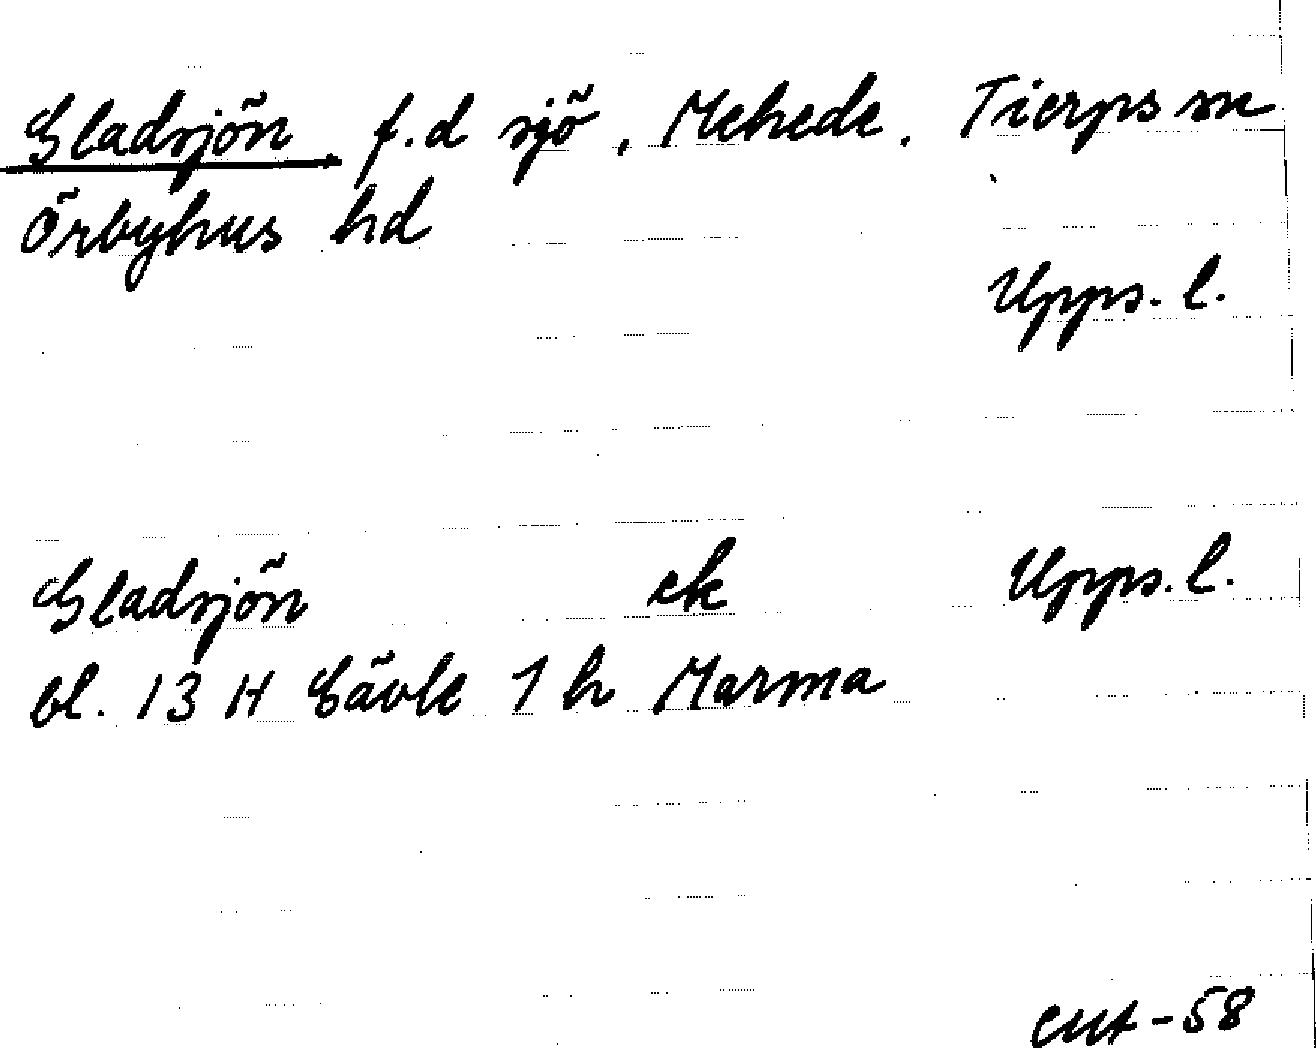 Gladsjön f.d sjö, Mehede. Tierps sn
Örbyhus hd
Upps. l.
Gladsjön ek Upps. l.
bl. 13 H Gävle 1 h Marma
-58